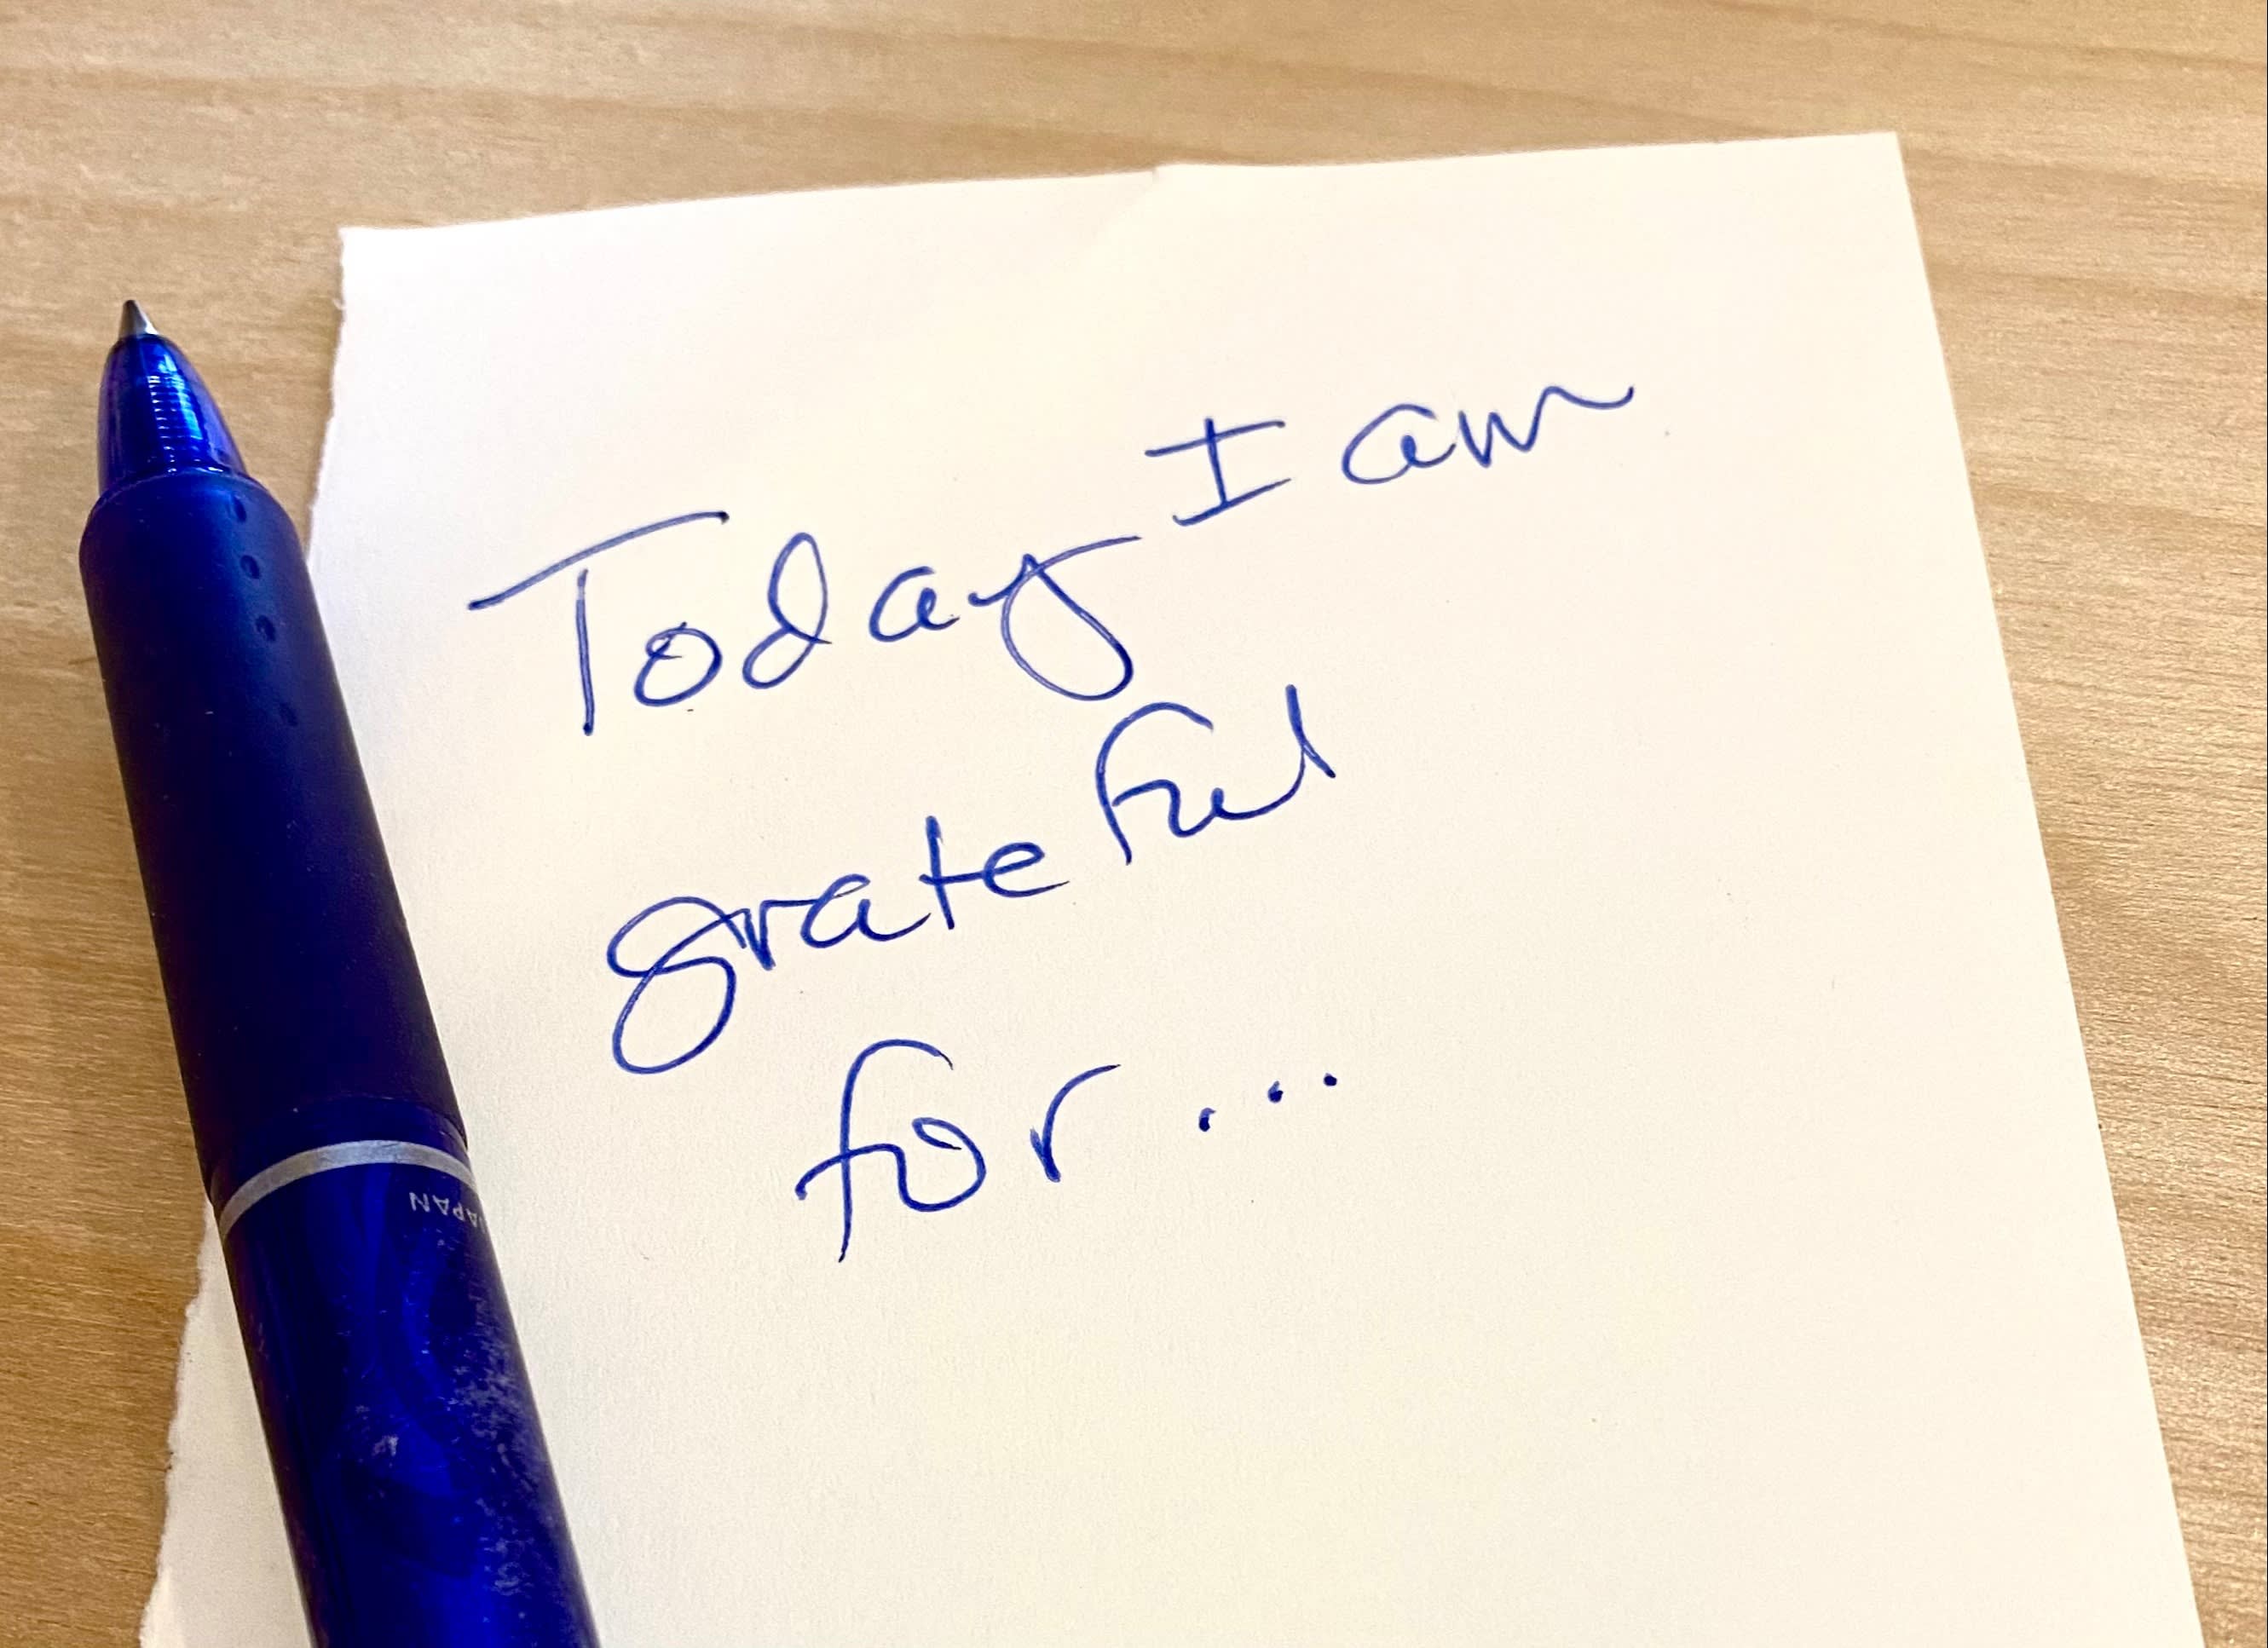 Today I am
grateful
for...
JAPAN